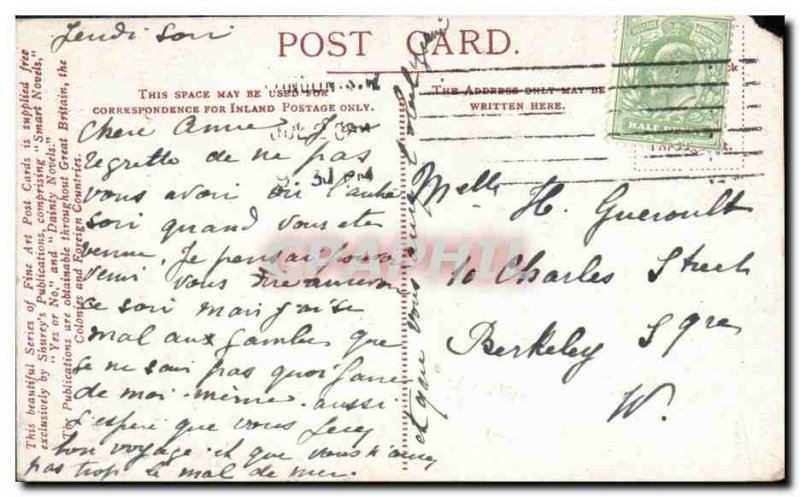 Jeudi Soir
POST CARD.
THIS SPACE MAY BE USED FOR
CORRESPONDENCE FOR INLAND POSTAGE ONLY.
THE ADDRESS ONLY MAY BE
WRITTEN HERE.
HALF PENNY
Chère Amie Je
regrette de ne pas
vous avoir vu l'autre
soir quand vous ete
venue. Je pensai pouvoir
venir vous
ce soir mais j'ai si
mal aux jambes que
je ne sais pas quoi faire
de moi-même aussi
J'espère que vous ferez
bon voyage et que vous n'aurez
pas trop le mal de mer.
et que vous
Melle H. Gueroult
10 Charles Street
Berkeley Sqre
W.
This beautiful Series of Fine Art Post Cards is supplied free
exclusively by Shurey's Publications, comprising "Smart Novels,"
"Yes or No," and "Dainty Novels."
The Publications are obtainable throughout Great Britain, the
Colonies and Foreign Countries.